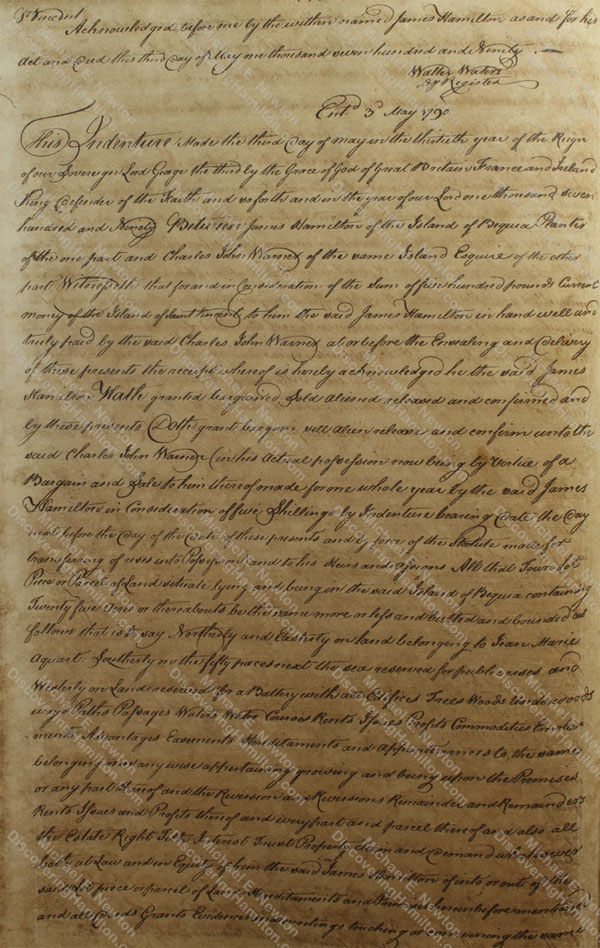 St Vincent
Acknowledged before me by the within named James Hamilton as and for his
Act and Deed this third day of May one thousand seven hundred and Ninety.
Walter Waters
Register
Ent'd 3d May 1790
This Indenture Made the third Day of May in the thirtieth year of the Reign
of our Sovereign Lord George the third by the Grace of God of Great Britain France and Ireland
King Defender of the Faith and so forth and in the year of our Lord one thousand seven
hundred and Ninety Between James Hamilton of the Island of Bequia Planter
of the one part and Charles John Warner of the same Island Esquire of the other
part Witnesseth that for and in Consideration of the Sum of five hundred pounds Current
money of the Island of Saint Vincent to him the said James Hamilton in hand well and
truly paid by the said Charles John Warner at or before the Ensealing and Delivery
of these presents the receipt whereof is hereby acknowledged he the said James
Hamilton Hath granted bargained Sold aliened released and confirmed and
by these presents Doth grant bargain sell alien release and confirm unto the
said Charles John Warner (in his actual possession now being by virtue of a
Bargain and Sale to him thereof made for one whole year by the said James
Hamilton in Consideration of five Shillings by Indenture bearing Date the Day
next before the Day of the Date of these presents and by force of the Statute made for
transferring of uses into Possession) and to his Heirs and assigns All that
Piece or Parcel of Land situate lying and being in the said Island of Bequia containing
Twenty five Acres or thereabouts be the same more or less and butted and bounded as
follows that is to say Northerly and Easterly on land belonging to Jean Marie
Aquart Southerly on the fifty paces next the sea reserved for public uses and
Westerly on Land reserved for a Battery with all Edifices Trees Woods Underwoods
ways Paths Passages Waters Water Courses Rents Issues Profits Commodities
Advantages Easements Hereditaments and Appurtenances to the same
belonging or in any wise appertaining growing and being upon the Premises
or any part thereof and the Reversion and Reversions Remainder and Remainders
Rents Issues and Profits thereof and every part and parcel thereof and also all
the Estate Right Title Interest Trust Property claim and demand
both at Law and in Equity of him the said James Hamilton of into or out of the
said Lot piece or parcel of Land Hereditaments and herein before mentioned
and all Deeds Grants Evidences and writings touching or concerning the same
DiscoverMichaelHamilton.com